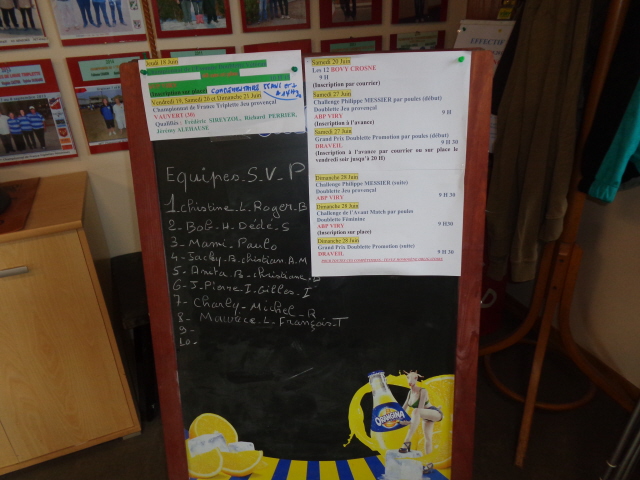 Jeudi 18 Juin
Inscription sur place)
Vendredi 19, Samedi 20 et Dimanche 21 Juin
Championnat de France Triplette Jeu provençal
VAUVERT (30)
Qualifiés : Frédéric SIREYZOL, Richard PERRIER,
Jérémy ALEHAUSE
Samedi 20 Juin
Les 12 BOVY CROSNE
9 H
(Inscription par courrier)
Samedi 27 Juin
Challenge Philippe MESSIER par poules (début)
Doublette Jeu provençal
ABP VIRY 9 H
(Inscription à l'avance)
Samedi 27 Juin
Grand Prix Doublette Promotion par poules (début)
DRAVEIL 9 H 30
(Inscription à l'avance par courrier ou sur place le
vendredi soir jusqu'à 20 H)
Dimanche 28 Juin
Challenge Philippe MESSIER (suite)
Doublette Jeu provençal
ABP VIRY 9 H 30
Dimanche 28 Juin
Challenge de l'Avant Match par poules
Doublette Féminine
ABP VIRY 9 H30
(Inscription sur place)
Dimanche 28 Juin
Grand Prix Doublette Promotion (suite)
DRAVEIL 9 H 30
EFFECTIF
Equipes.S.V.P
1.Christine.L.Roger.B
2-Bob.H.Dédé.S
3-Mami-Paulo
4-Jacky.B.christian.A.M
5-Anita.B-christiane.D
6-J.Pierre.I.Gilles.I
7-Charly-Michel-R
8-Maurice.L.François.T
9-
10-
ORANGINA